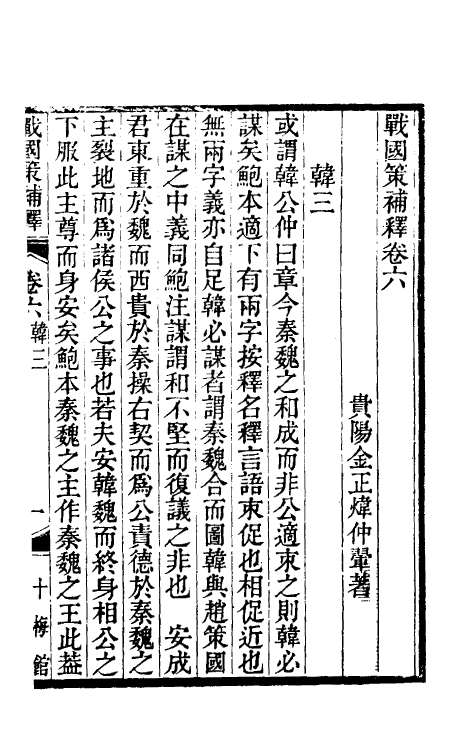 戰國策補釋卷六
貴陽金正煒仲翬著
韓三
或謂韓公仲曰章今秦魏之和成而非公適束之則韓必
謀矣鮑本適下有兩字按釋名釋言語束促也相促近也
無兩字義亦自足韓必謀者謂秦魏合而圖韓與趙策國
在謀之中義同鮑注謀謂和不堅而復議之非也　安成
君東重於魏而西貴於秦操右契而爲公責德於秦魏之
主裂地而爲諸侯公之事也若夫安韓魏而終身相公之
下服此主尊而身安矣鮑本秦魏之主作秦魏之王此葢
戰國策補釋　卷六韓三　一　十梅館